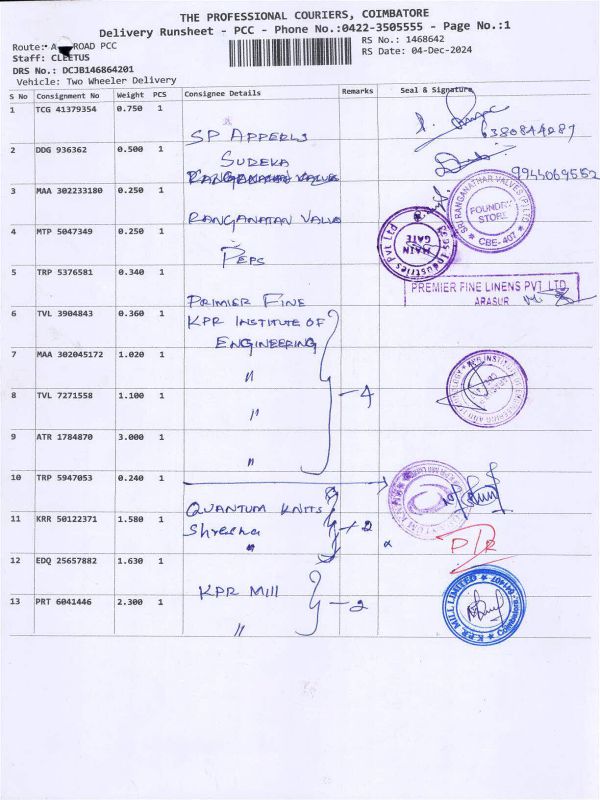 THE PROFESSIONAL COURIERS, COIMBATORE
Delivery Runsheet - PCC - Phone No.:0422-3505555 - Page No.:1
Route: A ROAD PCC
RS No.: 1468642
Staff: CLEETUS
RS Date: 04-Dec-2024
DRS No.: DCJB146864201
Vehicle: Two Wheeler Delivery
S No Consignment No Weight PCS Consignee Details Remarks Seal & Signature
1 TCG 41379354 0.750 1
SP APPERLS
6380844287
2 DDG 936362 0.500 1
SUDEKA
RANGANATAN VALVE
9944069552
3 MAA 302233180 0.250 1
RANGANATAN VALVO
SRI RANGANATHAR VALVES (P) LTD
FOUNDRY STORE
CBE-407
4 MTP 5047349 0.250 1
PEPS
Industries Pvt Ltd
MAIN GATE
5 TRP 5376581 0.340 1
PRIMIER FINE
PREMIER FINE LINENS PVT. LTD.
ARASUR
6 TVL 3904843 0.360 1
KPR INSTITUTE OF
ENGINEERING
7 MAA 302045172 1.020 1
"
8 TVL 7271558 1.100 1
"
4
9 ATR 1784870 3.000 1
"
10 TRP 5947053 0.240 1
QUANTUM KNITS
11 KRR 50122371 1.580 1
Shreeha
"
2
P/R
12 EDQ 25657882 1.630 1
KPR Mill
13 PRT 6041446 2.300 1
"
2
K.P.R. MILL LIMITED
Coimbatore 641407